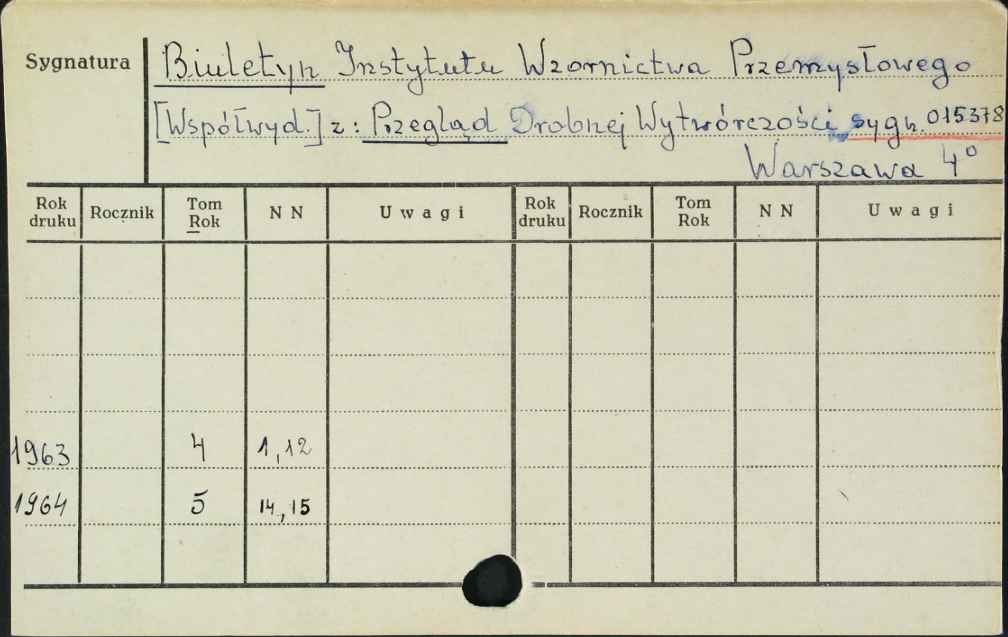 Sygnatura Biuletyn Instytutu Wzornictwa Przemysłowego
[Współwyd.] z: Przegląd Drobnej Wytwórczości sygn. 015378
Warszawa 4°
Rok druku Rocznik Tom Rok N N Uwagi Rok druku Rocznik Tom Rok N N Uwagi
1963 4 1,12
1964 5 14,15